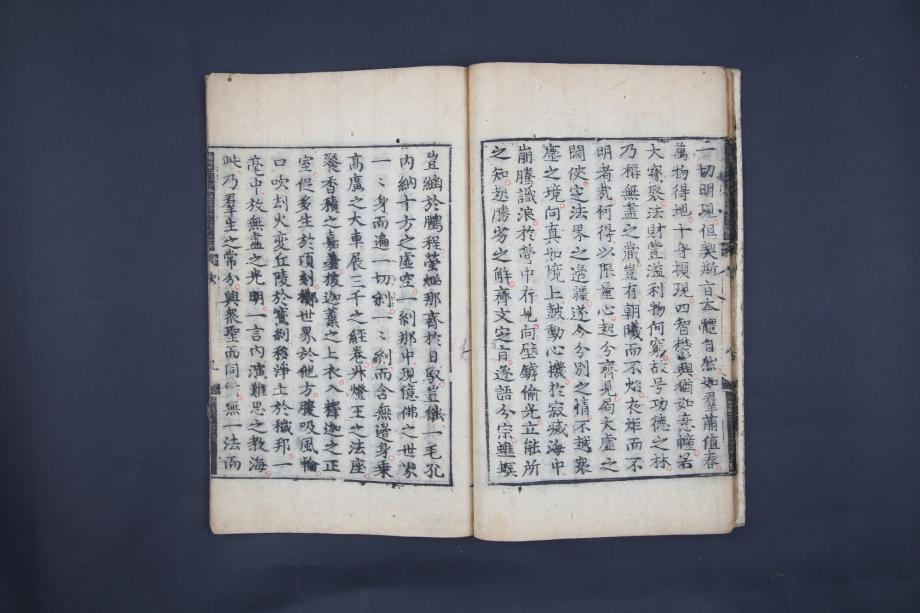 一切明現但契斯旨本體自然如羣萠值春
萬物得地十身頓現四智鬱興猶如意幢若
大寶聚法財豐溢利物何窮故号功德之林
乃稱無盡之藏豈有朝曦而不焰夜炬而不
明者哉何得以限量心起分齊見局大虛之
闊狹定法界之邊疆遂令分別之情不越衆
塵之境向真如境上鼓動心機於寂滅海中
崩騰識浪於管中行見向壁罅偷光立能所
之知起勝劣之解齊文定旨逐語分宗蟭螟
豈繼於鵬程螢燄那齊於日馭豈能一毛孔
内納十方之虛空一刹那中現億佛之世界
一〻身而遍一切刹一〻刹而含無邊身乗
高廣之大車展三千之經卷升燈王之法座
飡香積之嘉羹披迦葉之上衣入釋迦之正
室促多生於頃刻擲世界於他方腹吸風輪
口吹刧火变丘陵於寳刹移淨土於穢邦一
毫中放無盡之光明一言内演難思之教海
此乃羣生之常分與衆聖而同無一法而